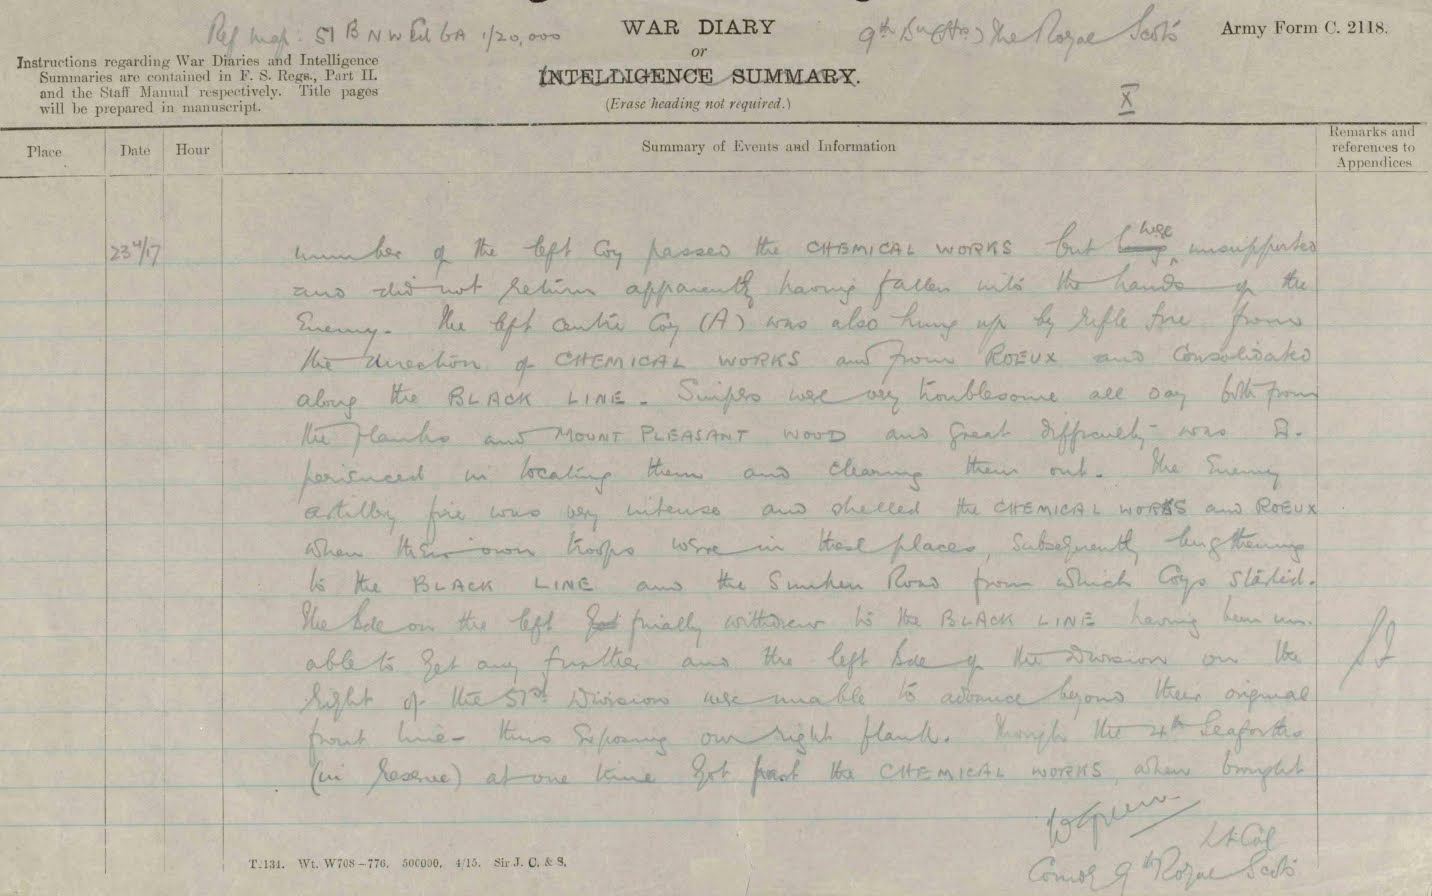 Ref map: 51 B NW Ed 6A 1/20,000
WAR DIARY
or
INTELLIGENCE SUMMARY.
(Erase heading not required.)
9th Bn (Hrs) The Royal Scots
Army Form C. 2118.
X
Instructions regarding War Diaries and Intelligence
Summaries are contained in F. S. Regs., Part II.
and the Staff Manual respectively. Title pages
will be prepared in manuscript.
Place
Date
Hour
Summary of Events and Information
Remarks and
references to
Appendices
23/4/17
number of the left Coy passed the CHEMICAL WORKS but were unsupported
and did not return apparently having fallen into the hands of the
Enemy. The left centre Coy (A) was also hung up by rifle fire from
the direction of CHEMICAL WORKS and from ROEUX and consolidated
along the BLACK LINE. Snipers were very troublesome all day both from
the flanks and MOUNT PLEASANT WOOD and great difficulty was Ex-
perienced in locating them and clearing them out. The Enemy
artillery fire was very intense and shelled the CHEMICAL WORKS and ROEUX
when their own troops were in these places, subsequently lengthening
to the BLACK LINE and the Sunken Road from which Coys started.
The Bde on the left finally withdrew to the BLACK LINE having been un-
able to get any further and the left Bde of the Division on the
right of the 51st Division were unable to advance beyond their original
front line - thus Exposing our right flank. Though the 4th Seaforths
(in Reserve) at one time got past the CHEMICAL WORKS, when brought
Lt Col
Comdg 9th Royal Scots
T.134. Wt. W708-776. 500000. 4/15. Sir J. C. & S.